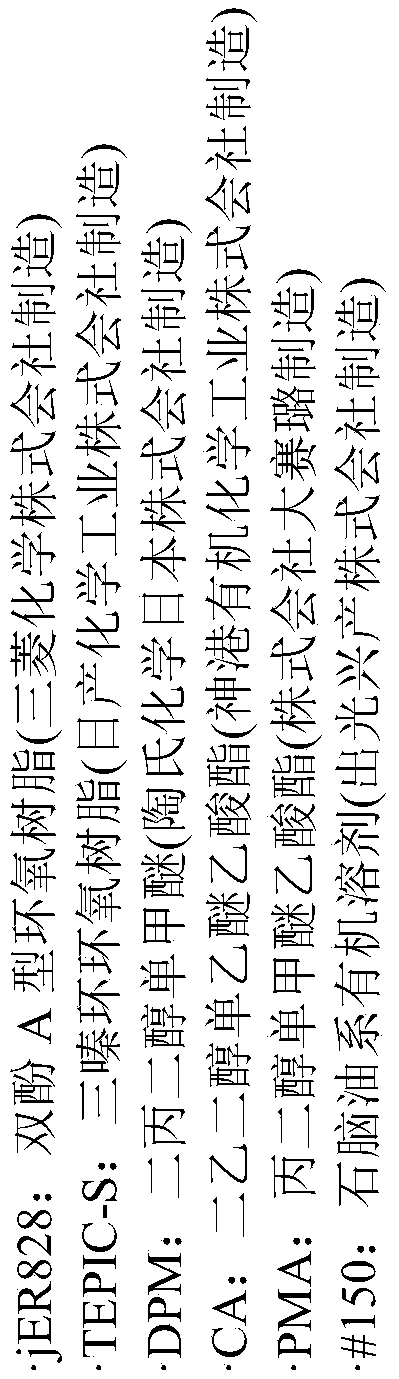 ·jER828：双酚 A 型环氧树脂(三菱化学株式会社制造)
·TEPIC-S：三嗪环环氧树脂(日产化学工业株式会社制造)
·DPM：二丙二醇单甲醚(陶氏化学日本株式会社制造)
·CA：二乙二醇单乙醚乙酸酯(神港有机化学工业株式会社制造)
·PMA：丙二醇单甲醚乙酸酯(株式会社大赛璐制造)
·#150：石脑油系有机溶剂(出光兴产株式会社制造)